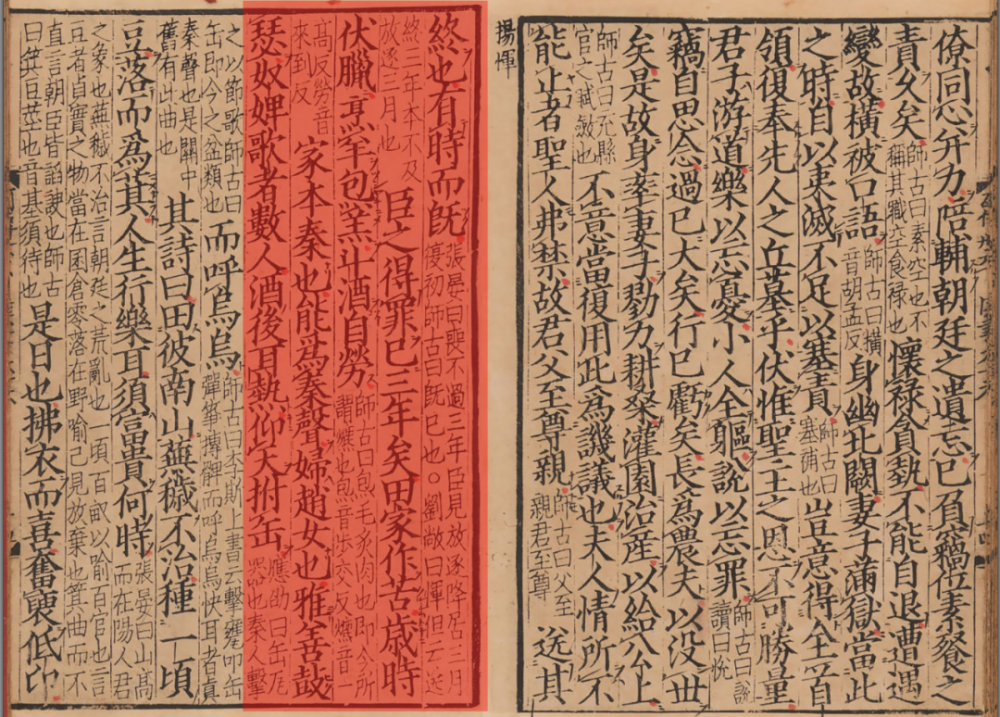 僚同心并力陪輔朝廷之遺忘已負竊位素飱之
責久矣師古曰素空也不稱其職空食祿也懷祿貪埶不能自退遭遇
變故橫被口語師古曰橫音胡孟反身幽北闕妻子滿獄當此
之時自以夷滅不足以塞責師古曰塞補也豈意得全首
領復奉先人之丘墓乎伏惟聖主之恩不可勝量
君子游道樂以忘憂小人全軀說以忘罪師古曰說讀曰悅
竊自思念過已大矣行已虧矣長爲農夫以没世
矣是故身率妻子勠力耕桒灌園治産以給公上
師古曰充縣官之賦斂也不意當復用此爲譏議也夫人情所不
能止者聖人弗禁故君父至尊親師古曰父至親君至尊送其
楊惲
終也有時而旣張晏曰喪不過三年臣見放逐降居三月復初師古曰旣已也○劉敞曰惲但云送
終三年本不及放逐三月也臣之得罪已三年矣田家作苦歲時
伏臘烹羊包羔斗酒自勞師古曰包毛炙肉也即今所謂爊也包音步交反爊音一
高反勞音來到反家本秦也能爲秦聲婦趙女也雅善鼓
瑟奴婢歌者數人酒後耳熱仰天拊缶應劭曰缶瓦器也秦人擊
之以節歌師古曰缶即今之盆類也而呼烏烏師古曰李斯上書云擊甕叩缶彈筝搏髀而呼烏烏快耳者眞
秦聲也是關中舊有此曲也其詩曰田彼南山蕪穢不治種一頃
豆落而爲萁人生行樂耳須富貴何時張晏曰山高而在陽人君
之象也蕪穢不治言朝廷之荒亂也一頃百畝以喻百官也言豆者貞實之物當在囷倉零落在野喻己見放棄也萁曲而不
直言朝臣皆諂諛也師古曰萁豆莖也音基須待也是日也拂衣而喜奮褎低卬